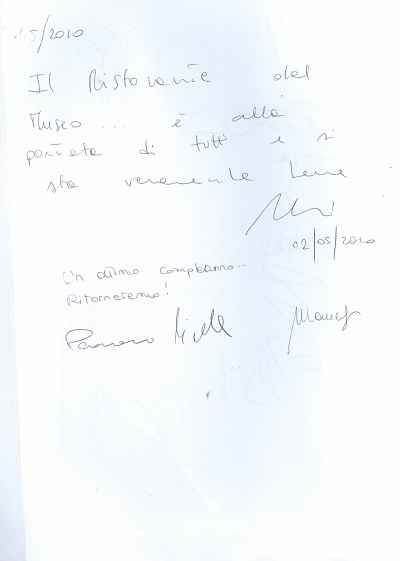 15/2010
Il Ristorante del
Museo... è alla
portata di tutti e si
sta veramente bene
02/05/2010
Un ottimo compleanno...
Ritorneremo!